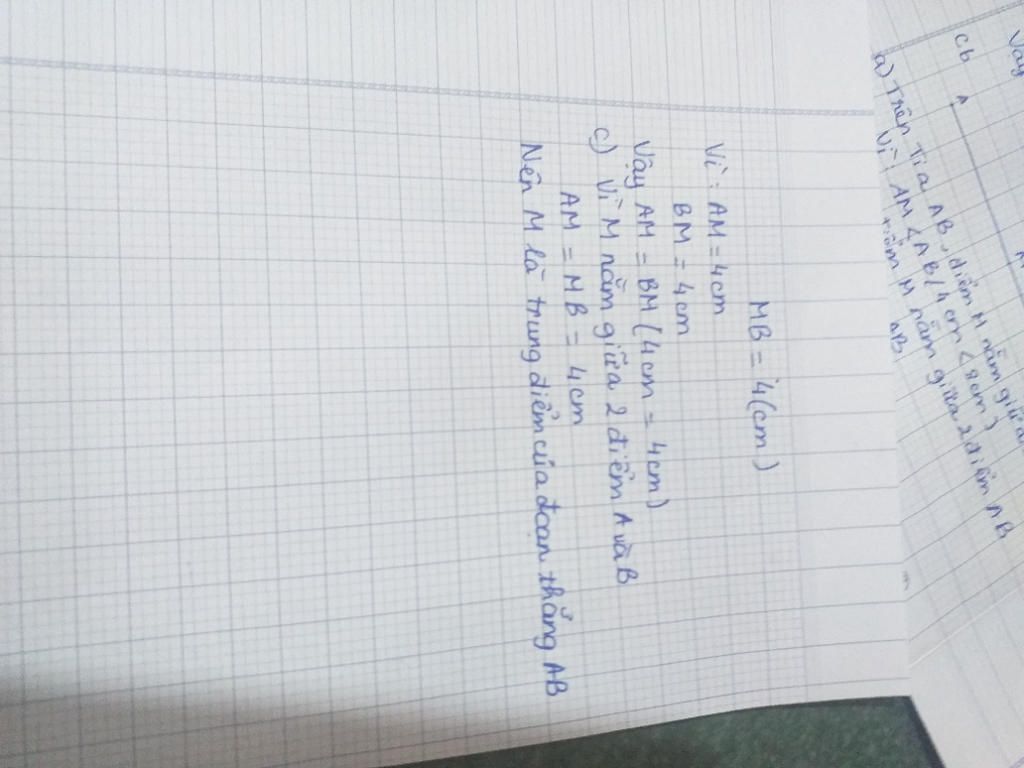 Vậy
Cb
A
a) Trên tia AB, điểm M nằm giữa
Vì: AM < AB (4cm < 8cm)
điểm M nằm giữa 2 điểm AB
AB.
MB = 4(cm)
Vì: AM = 4cm
BM = 4cm
Vậy AM = BM (4cm = 4cm)
c) Vì M nằm giữa 2 điểm A và B
AM = MB = 4cm
Nên M là trung điểm của đoạn thẳng AB